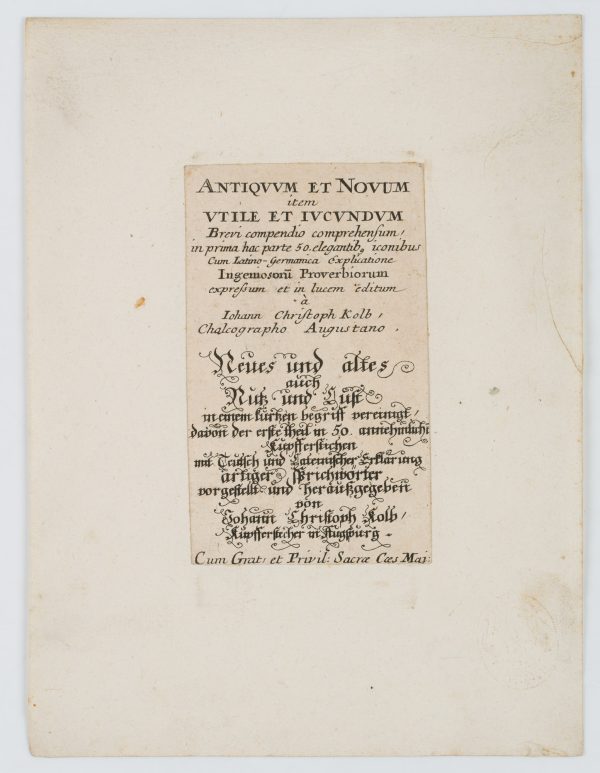 ANTIQVVM ET NOVUM
item
VTILE ET IVCUNDVM
Brevi compendio comprehensum,
in prima hac parte 50. elegantib, iconibus
Cum Latino-Germanica explicatione
Ingemosorū Proverbiorum
expressum et in lucem editum
à
Iohann Christoph Kolb,
Chalcographo Augustano.
Neues und altes
auch
Nutz und Lust
in einem kurtzen begriff vereinigt,
davon der erste theil in 50. annehmlichſt
Kupfferstichen
mit Teutsch und Lateinischer Erklärung
artiger Sprichwörter
vorgestellt und heraußgegeben
von
Johann Christoph Kolb,
Kupfferstecher in Augspurg.
Cum Grat: et Privil: Sacræ Cæs Mai: